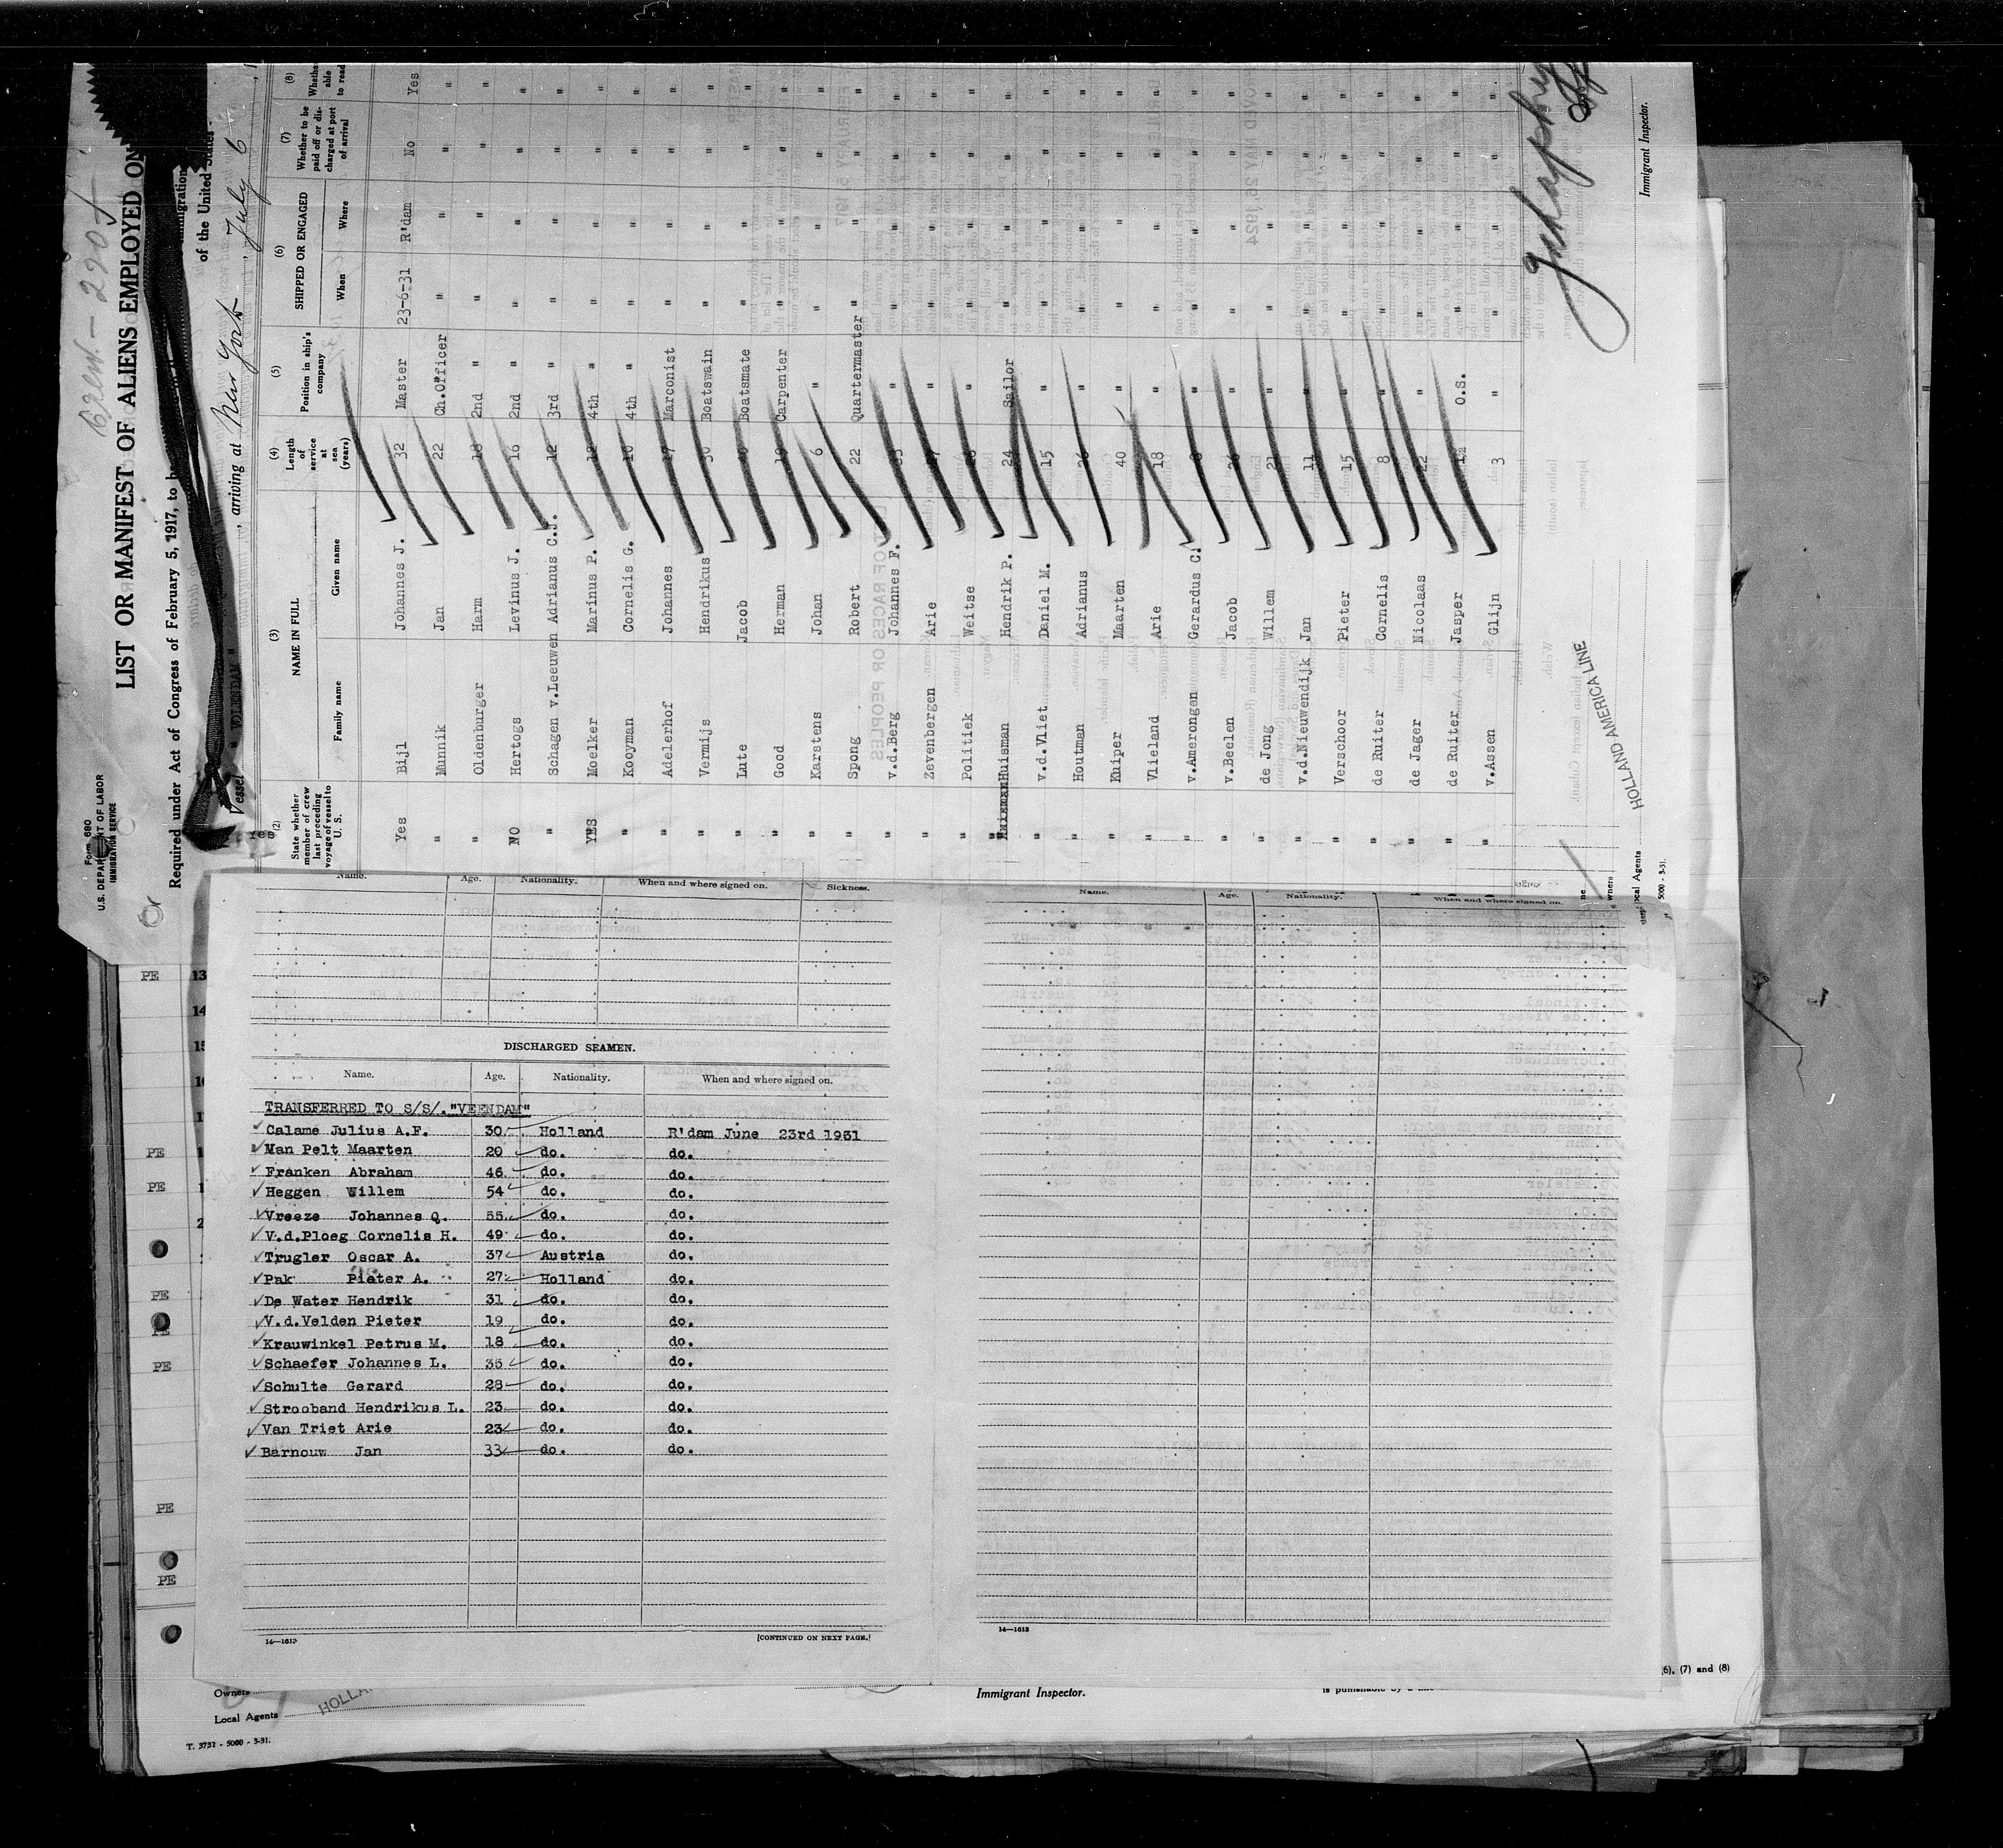 Form 680
U.S. DEPARTMENT OF LABOR
IMMIGRATION SERVICE
LIST OR MANIFEST OF ALIENS EMPLOYED ON
Required under Act of Congress of February 5, 1917, to be
Immigration
of the United States
Vessel "VOLENDAM", arriving at New York, July 6
(2) (3) (4) (5) (6) (7) (8)
State whether member of crew last preceding voyage of vessel to U. S.
NAME IN FULL
Family name Given name
Length of service at sea (years)
Position in ship's company
SHIPPED OR ENGAGED
When Where
Whether to be paid off or discharged at port of arrival
Whether able to read
Yes
Yes Bijl Johannes J. 32 Master 23-6-31 R'dam No Yes
" Munnik Jan 22 Ch.Officer " " " "
" Oldenburger Harm 18 2nd " " " " "
NO Hertogs Levinus J. 16 2nd " " " " "
" Schagen v.Leeuwen Adrianus C.J. 12 3rd " " " " "
YES Moelker Marinus P. 12 4th " " " " "
" Kooyman Cornelis G. 10 4th " " " " "
" Adelerhof Johannes 17 Marconist " " " "
" Vermijs Hendrikus 30 Boatswain " " " "
" Lute Jacob Boatsmate " " " "
" Good Herman 19 Carpenter " " " "
" Karstens Johan 6 " " " " "
" Spong Robert 22 Quartermaster " " " "
" v.d.Berg Johannes F. " " " " "
" Zevenbergen Arie " " " " "
" Politiek Weitse " " " " "
" Huisman Hendrik P. 24 Sailor " " " "
" v.d.Vliet Daniel M. 15 " " " " "
" Houtman Adrianus 26 " " " " "
" Kuiper Maarten 40 " " " " "
" Vlieland Arie 18 " " " " "
" v.Amerongen Gerardus C. 8 " " " " "
" v.Beelen Jacob 26 " " " " "
" de Jong Willem 21 " " " " "
" v.d.Nieuwendijk Jan 11 " " " " "
" Verschoor Pieter 15 " " " " "
" de Ruiter Cornelis 8 " " " " "
" de Jager Nicolaas 22 " " " " "
" de Ruiter Jasper 1½ O.S. " " " "
" v.Assen Glijn 3 " " " " "
HOLLAND AMERICA LINE
Immigrant Inspector.
Local Agents
5000 - 3-31.
Name. Age. Nationality. When and where signed on. Sickness.
Name. Age. Nationality. When and where signed on.
DISCHARGED SEAMEN.
Name. Age. Nationality. When and where signed on.
TRANSFERRED TO S/S/. "VEENDAM"
Calame Julius A.F. 30 Holland R'dam June 23rd 1931
Van Pelt Maarten 20 do. do.
Franken Abraham 46 do. do.
Heggen Willem 54 do. do.
Vreeze Johannes Q. 55 do. do.
V.d.Ploeg Cornelis H. 49 do. do.
Trugler Oscar A. 37 Austria do.
Pak Pieter A. 27 Holland do.
De Water Hendrik 31 do. do.
V.d.Velden Pieter 19 do. do.
Krauwinkel Petrus M. 18 do. do.
Schaefer Johannes L. 35 do. do.
Schulte Gerard 28 do. do.
Strooband Hendrikus L. 23 do. do.
Van Triet Arie 23 do. do.
Barnouw Jan 33 do. do.
14—1613 [CONTINUED ON NEXT PAGE.]
14—1613
PE
13
PE
14
15
PE
PE
PE
PE
PE
PE
(6), (7) and (8)
Owners
Local Agents
HOLLA
Immigrant Inspector.
T. 3732 - 5000 - 3-31.